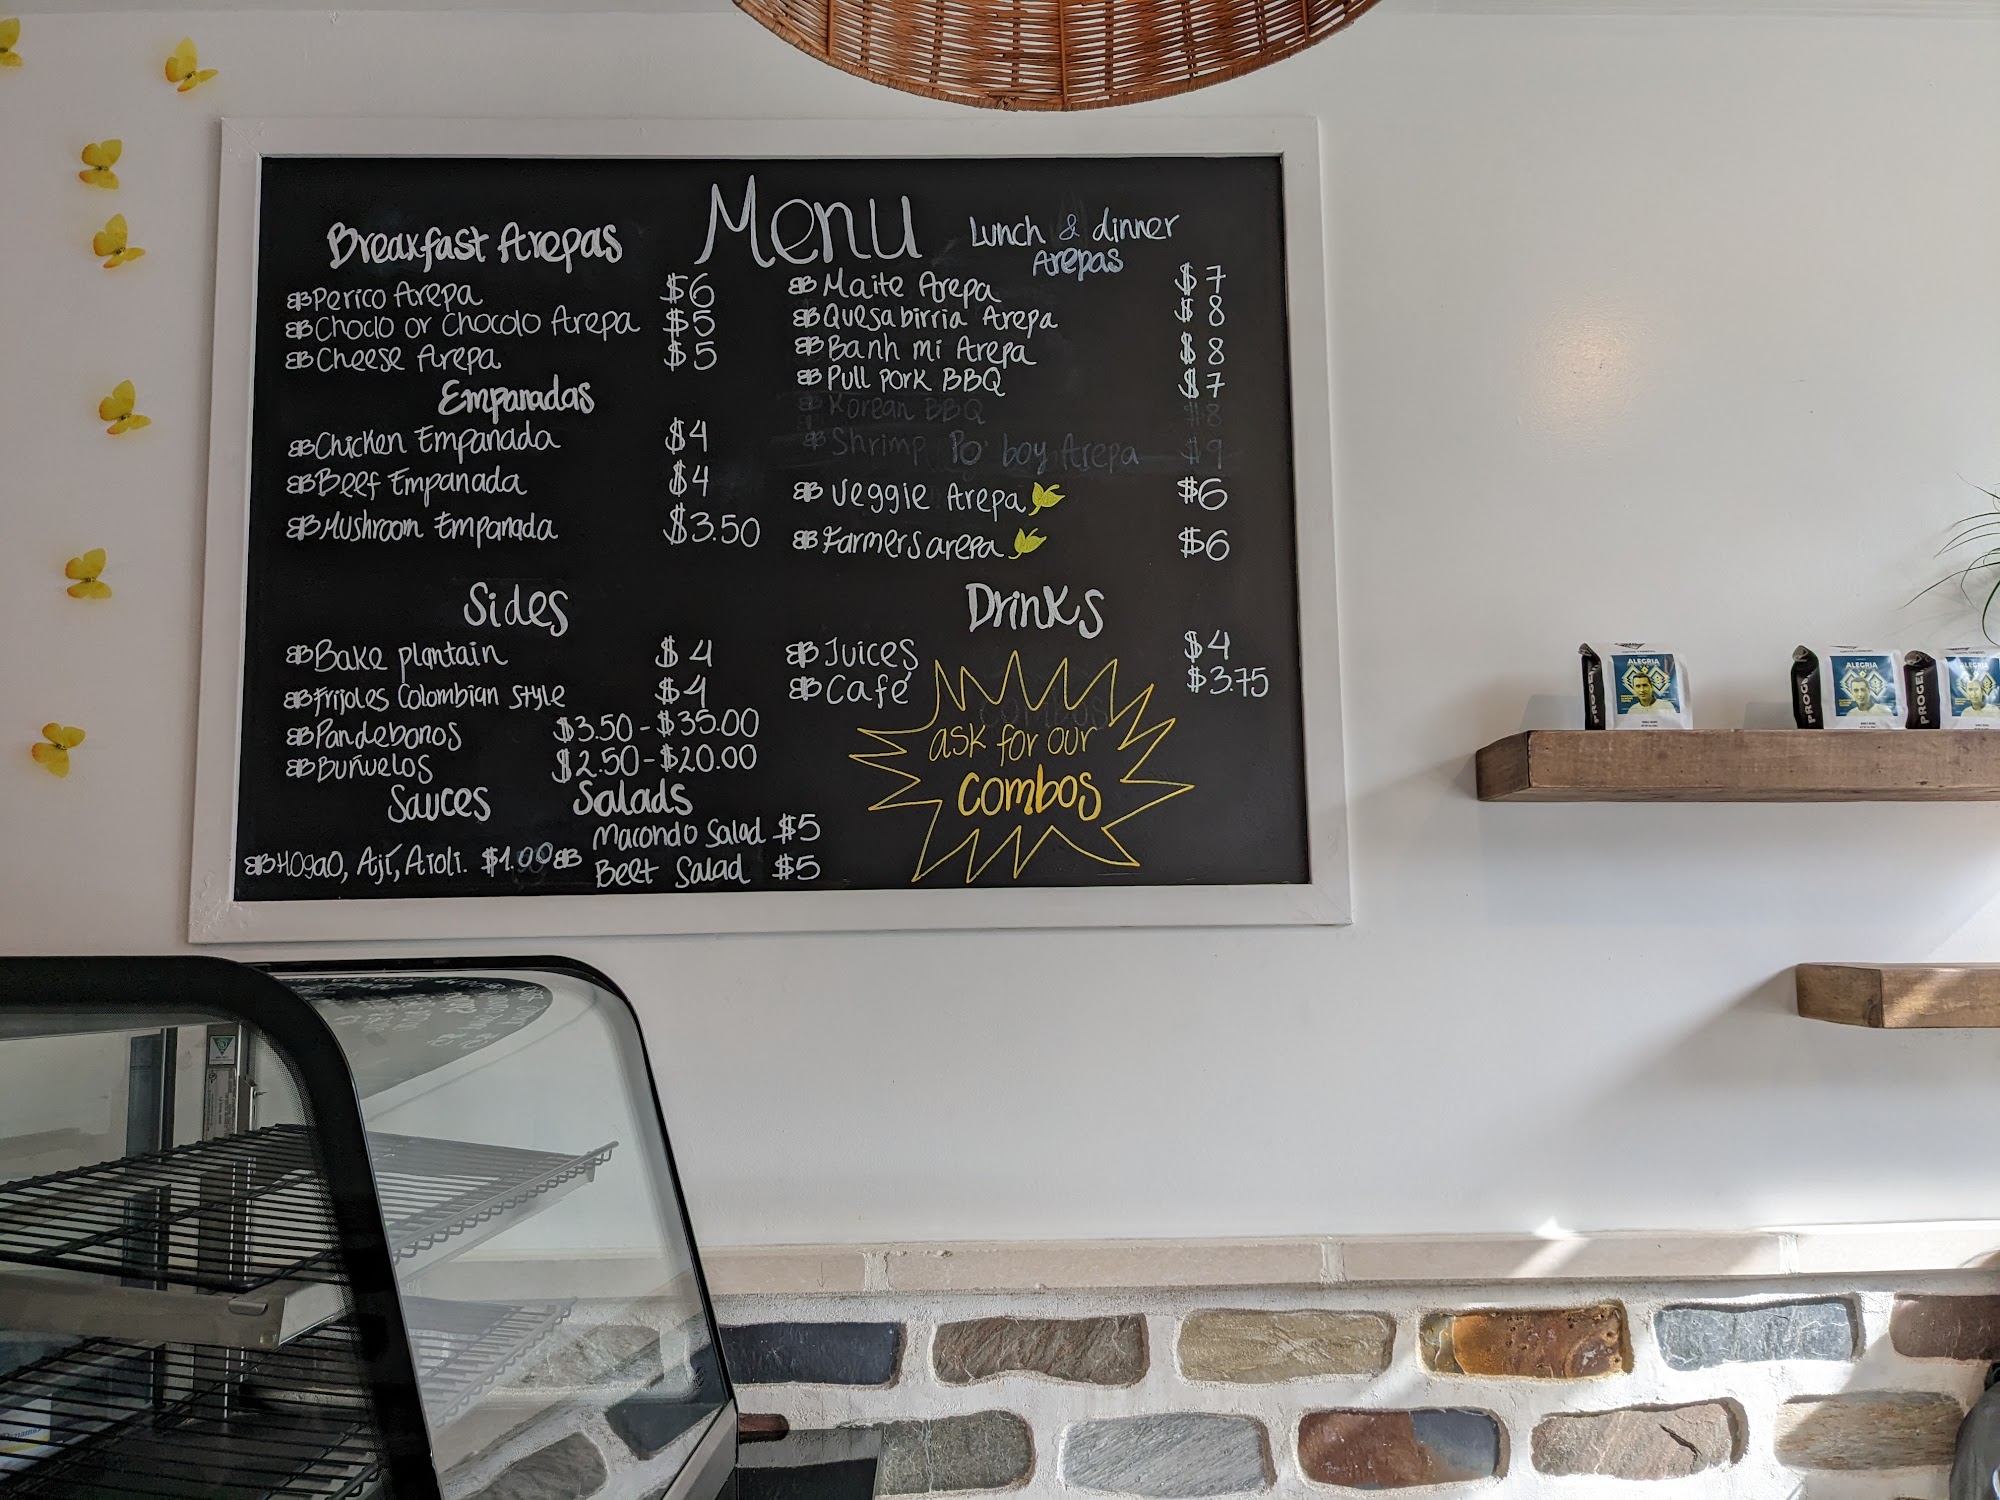 Menu
Breakfast Arepas
Perico Arepa $6
Choclo or Chocolo Arepa $5
Cheese Arepa $5
Empanadas
Chicken Empanada $4
Beef Empanada $4
Mushroom Empanada $3.50
Sides
Bake plantain $4
Frijoles Colombian Style $4
Pandebonos $3.50-$35.00
Buñuelos $2.50-$20.00
Sauces
Hogao, Ají, Aioli. $1.00
Salads
Macondo Salad $5
Beet Salad $5
Lunch & dinner
Arepas
Maite Arepa $7
Quesabirria Arepa $8
Banh mi Arepa $8
Pull pork BBQ $7
Korean BBQ $8
Shrimp Po' boy Arepa $9
Veggie Arepa $6
Farmers arepa $6
Drinks
Juices $4
Café $3.75
combos
ask for our
combos
PROGENY
ALEGRIA
PROGENY
ALEGRIA
PROGENY
ALEGRIA